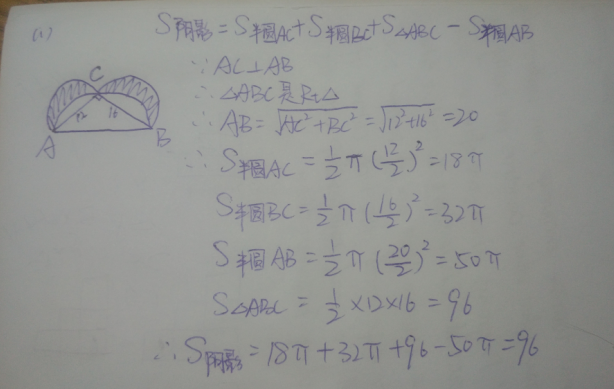 (1) S阴影 = S半圆AC + S半圆BC + S△ABC - S半圆AB
∵ AC⊥AB
∴ △ABC是Rt△
∴ AB = √AC² + BC² = √12² + 16² = 20
∴ S半圆AC = 1/2 π (12/2)² = 18π
S半圆BC = 1/2 π (16/2)² = 32π
S半圆AB = 1/2 π (20/2)² = 50π
S△ABC = 1/2 × 12 × 16 = 96
∴ S阴影 = 18π + 32π + 96 - 50π = 96
C
12 16
A B